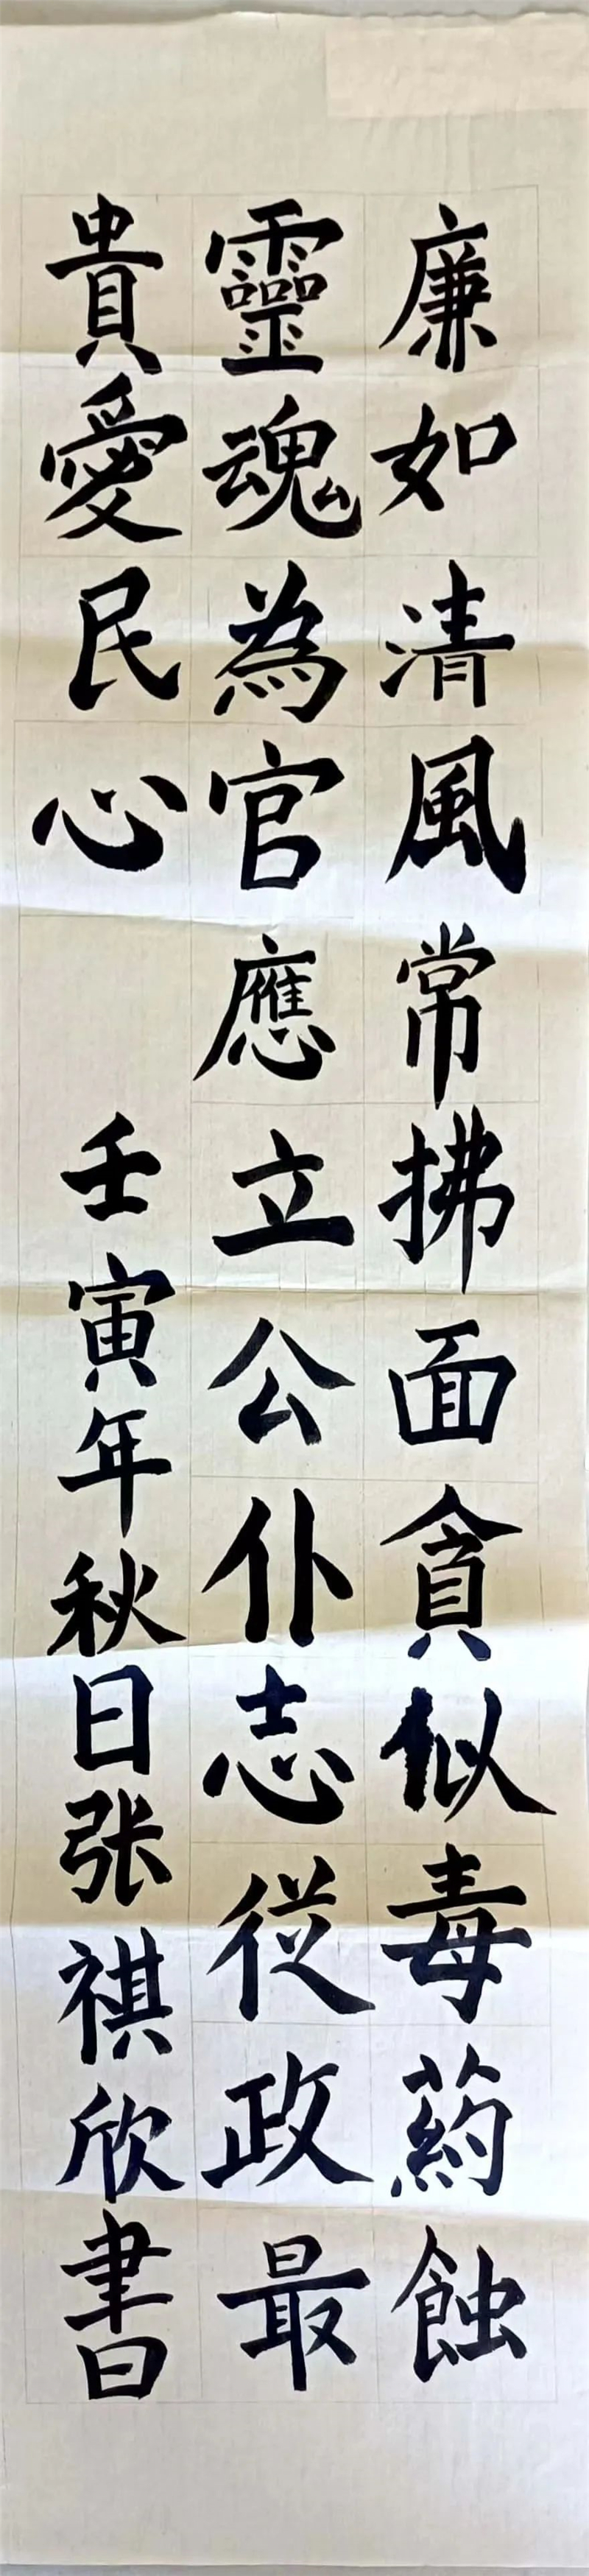 廉如清風常拂面貪似毒葯蝕
靈魂為官應立公仆志從政最
貴愛民心 壬寅年秋日张祺欣書